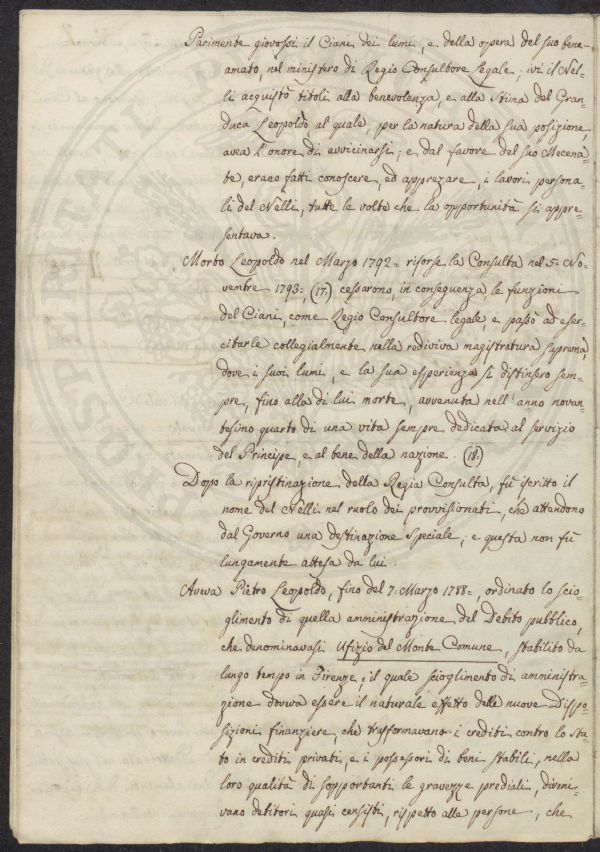 Parimente giovossi il Ciani dei lumi, e della opera del suo bene-
amato, nel ministero di Regio Consultore Legale; ivi il Nel-
li acquistò titoli alla benevolenza, e alla Stima del Gran-
duca Leopoldo, al quale, per la natura della sua posizione,
avea l'onore di avvicinarsi; e dal favore del suo Mecena-
te, erano fatti conoscere, ed apprezare, i lavori persona-
li del Nelli, tutte le volte che la opportunità si appre-
sentava.
Morto Leopoldo nel Marzo 1792= risorse la Consulta nel 5= No-
vembre 1793=, (17.) cessarono, in conseguenza, le funzioni
del Ciani, come Regio Consultore legale, e passò ad eser-
citarle collegialmente nella rediviva magistratura suprema,
dove i suoi lumi, e la sua esperienza si distinsero sem-
pre, fino alla di lui morte, avvenuta nell'anno novan-
tesimo quarto di una vita sempre dedicata al servizio
del Principe, e al bene della nazione. (18.)
Dopo la ripristinazione della Regia Consulta, fù iscritto il
nome del Nelli nel ruolo dei provvisionati, che attendono
dal Governo una destinazione Speciale; e questa non fù
lungamente attesa da lui.
Aveva Pietro Leopoldo, fino del 7= Marzo 1788=, ordinato lo scio-
glimento di quella amministrazione del Debito pubblico,
che denominavasi Ufizio del Monte Comune, stabilito da
lungo tempo in Firenze; il quale scioglimento di amministra-
zione doveva essere il naturale effetto delle nuove Dispo-
sizioni finanziere, che trasformavano i crediti contro lo Sta-
to in crediti privati, e i possessori di beni stabili, nella
loro qualità di sopportanti le gravezze prediali, diveni-
vano debitori quasi censisti, rispetto alle persone, che